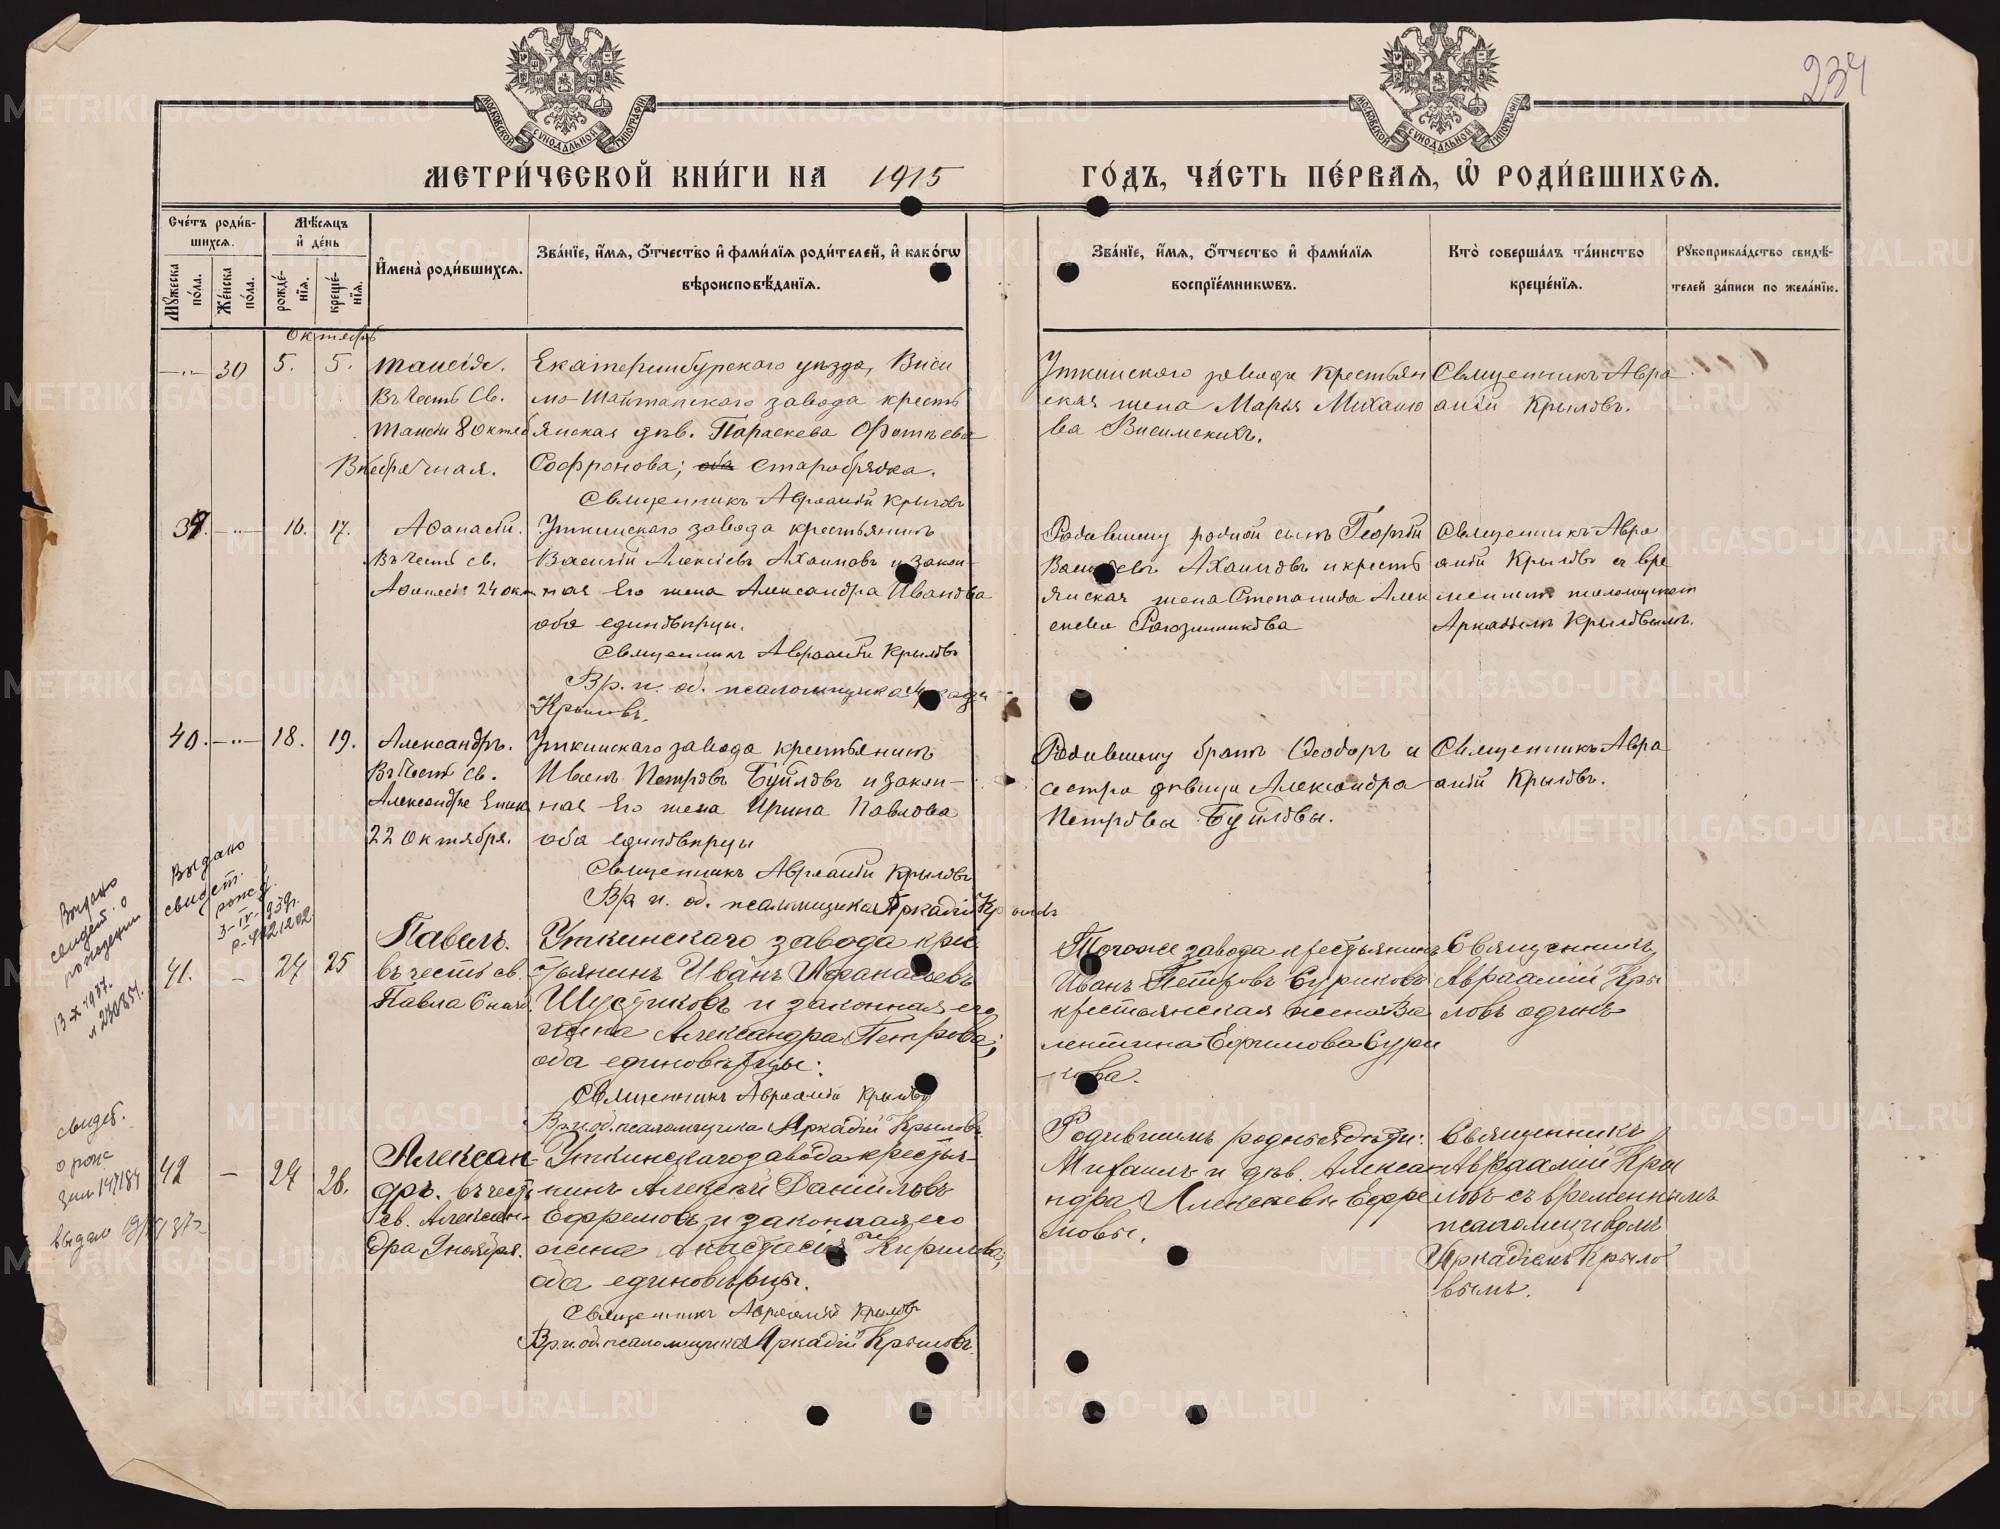 234
МЕТРИ́ЧЕСКОЙ КНИ́ГИ НА 1915 ГО́ДЪ, ЧА́СТЬ ПЕ́РВАЯ, Ѡ҆ РОДИ́ВШИХСЯ.
Сче́тъ роди́в-
шихся.
Мѣ́сяцъ
и҆ де́нь
Мꙋ́жеска по́ла.
Же́нска по́ла.
рожде́-
нїя.
креще́-
нїя.
И҆мена̀ роди́вшихся.
Зва́нїе, и҆́мя, ѻ҆́тчество и҆ фами́лїя роди́телей, и҆ како́гѡ
вѣроисповѣ́данїя.
Зва́нїе, и҆́мя, ѻ҆́тчество и҆ фами́лїя
воспрїе́мникѡвъ.
Кто̀ соверша́лъ та́инство
креще́нїя.
Рꙋкоприкла́дство свидѣ́-
телей за́писи по жела́нїю.
Октябрь
30 5. 5. Таисія.
Въ честь Св.
Таисіи 8 октяб
Внебрачная.
Екатеринбурскаго уѣзда, Виси
мо-Шайтанскаго завода кресть
янская дѣв. Параскева Фотіева
Софронова; оба старобрядка.
Священникъ Авраамій Крыловъ
Уткинскаго завода крестьян
ская жена Марья Михаило
ва Висимскихъ.
Священникъ Авра
амій Крыловъ.
39. 16. 17. Аѳанасій.
Въ честь св.
Аѳанасія 24 окт
Уткинскаго завода крестьянинъ
Василій Алексѣевъ Ахаимовъ и закон-
ная его жена Александра Иванова
оба единовѣрцы.
Священникъ Авраамій Крыловъ
Вр. и. об. псаломщика Аркадій
Крыловъ.
Родившему родной сынъ Георгій
Васильевъ Ахаимовъ и кресть
янская жена Степанида Алек
сѣева
Священникъ Авра
амій Крыловъ съ вре
меннымъ псаломщикомъ
Аркадіемъ Крыловымъ.
40. 18. 19. Александръ.
Въ честь св.
Александра Епик
22 Октября.
Уткинскаго завода крестьянинъ
Иванъ Петровъ Буйловъ и закон-
ная его жена Ирина Павлова
оба единовѣрцы
Священникъ Авраамій Крыловъ
Вр. и. об. псаломщика Аркадій Крыловъ
Родившему братъ Ѳеодоръ и
сестра дѣвица Александра
Петровы Буйловы.
Священникъ Авра
амій Крыловъ.
Выдано
свидет.
о рожд.
3-IV-1939г.
Выдано
свидет. о
рождении
13-X-1937.
41. - 24 25 Павелъ.
въ честь св.
Павла
Уткинскаго завода кре
стьянинъ Иванъ Аѳанасьевъ
Шустиковъ и законная его
жена Александра Петрова;
оба единовѣрцы.
Священникъ Авраамій Крыловъ
Вр. и. об. псаломщика Аркадій Крыловъ.
Того же завода крестьянинъ
Иванъ Петровъ Суриковъ
крестьянская жена Ва
лентина Ефимова Сури
кова.
Священникъ
Авраамій Кры
ловъ одинъ
свидет.
о рож
выдано
42 - 24 26. Алексан
дръ. въ честь
св. Алексан-
дра 9 ноября.
Уткинскаго завода крестья-
нинъ Алексѣй Даніиловъ
Ефремовъ и законная его
жена Анастасія Кирилова,
оба единовѣрцы.
Священникъ Авраамій Крыловъ
Вр. и. об. псаломщика Аркадій Крыловъ.
Родившимъ родные дѣти:
Михаилъ и дѣв. Алекса-
ндра Алексѣевы Ефре
мовы.
Священникъ
Авраамій Кры
ловъ съ временнымъ
псаломщикомъ
Аркадіемъ Крыло
вымъ.